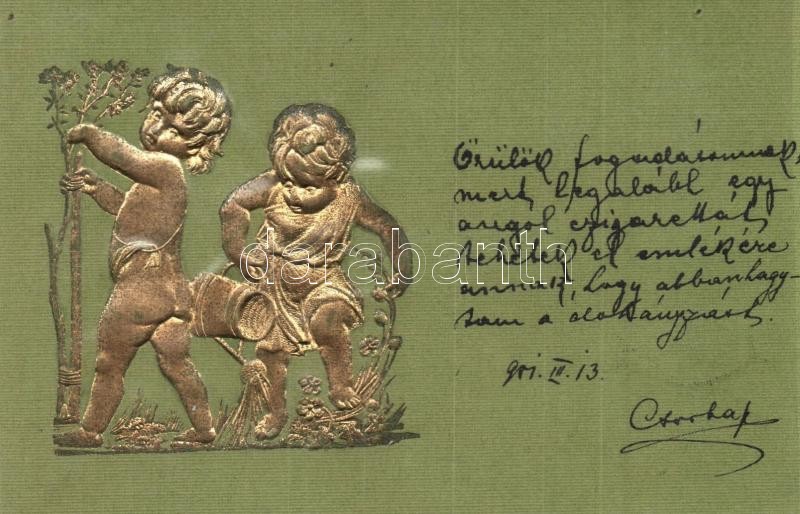 Örülök fogadásomnak,
mert legalább egy
angol czigarettát
el emlékére
annak, hogy abbanhagy-
tam a dohányzást.
901. III. 13.
darabanth